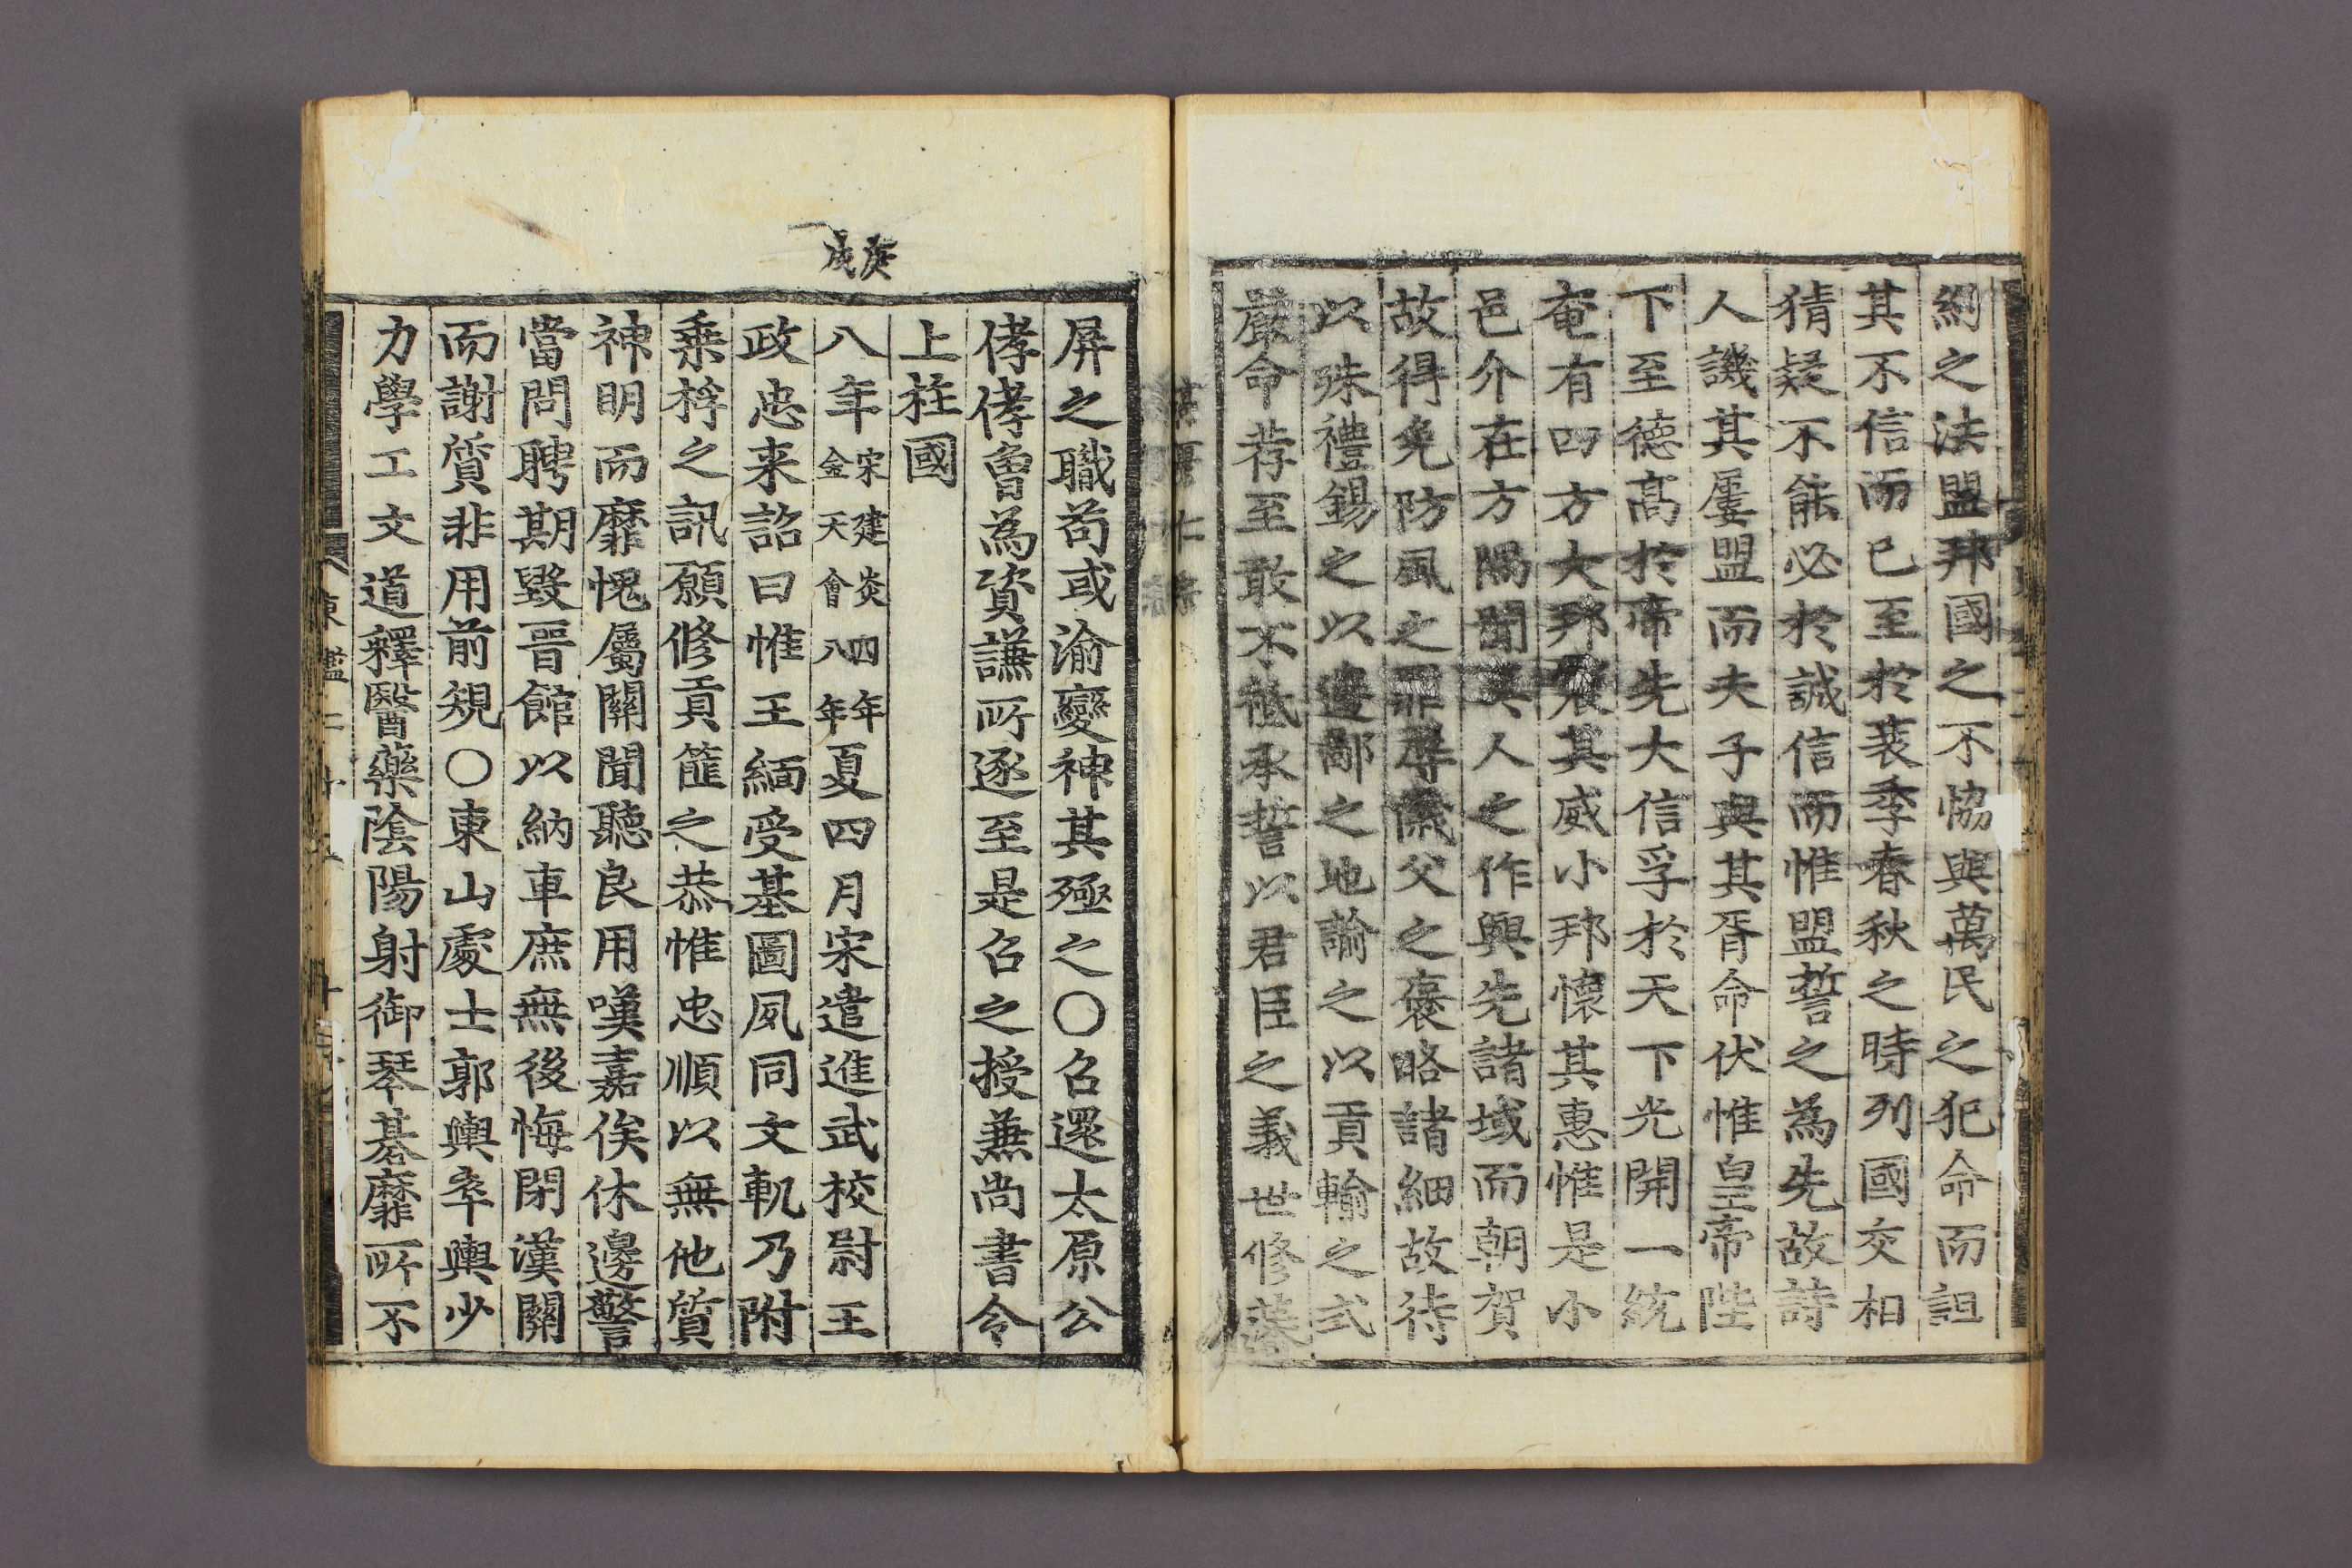 約之法盟邦國之不恊與萬民之犯命而詛
其不信而已至於衰季春秋之時列國交相
猜疑不能必於誠信而惟盟誓之為先故詩
人譏其屢盟而夫子與其胥命伏惟皇帝陛
下至德高於帝先大信孚於天下光開一統
奄有四方大邦畏其威小邦懷其惠惟是小
邑介在方隅聞眞人之作興先諸域而朝賀
故得免防風之罪辱儀父之褒略諸細故待
以殊禮錫之以邊鄙之地諭之以貢輸之式
嚴命荐至敢不祗承誓以君臣之義世修藩
諶夏仁綜
屏之職苟或渝變神其殛之〇召還太原公
侾侾魯為資謙所逐至是召之授兼尚書令
上柱國
庚戌
八年宋建炎四年金天會八年夏四月宋遣進武校尉王
政忠来詔曰惟王緬受基圖夙同文軌乃附
乘桴之訊願修貢篚之恭惟忠順以無他質
神明而靡愧屬關聞聽良用嘆嘉俟休邊警
當問聘期毀晉館以納車庶無後悔閉漢關
而謝質非用前規〇東山處士郭輿卒輿少
力學工文道釋醫藥陰陽射御琴碁靡所不
東鑑二十